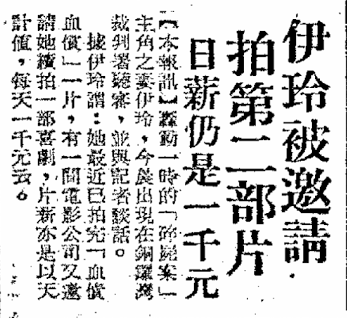 伊玲被邀請
拍第二部片
日薪仍是一千元
【本報訊】轟動一時的「碎屍案」
主角之妻伊玲，今晨出現在銅鑼灣
裁判署聽審，並與記者談話。
據伊玲謂：她最近已拍完「血債
血償」一片，有一間電影公司又邀
請她續拍一部喜劇，片薪亦是以天
計值，每天一千元云。